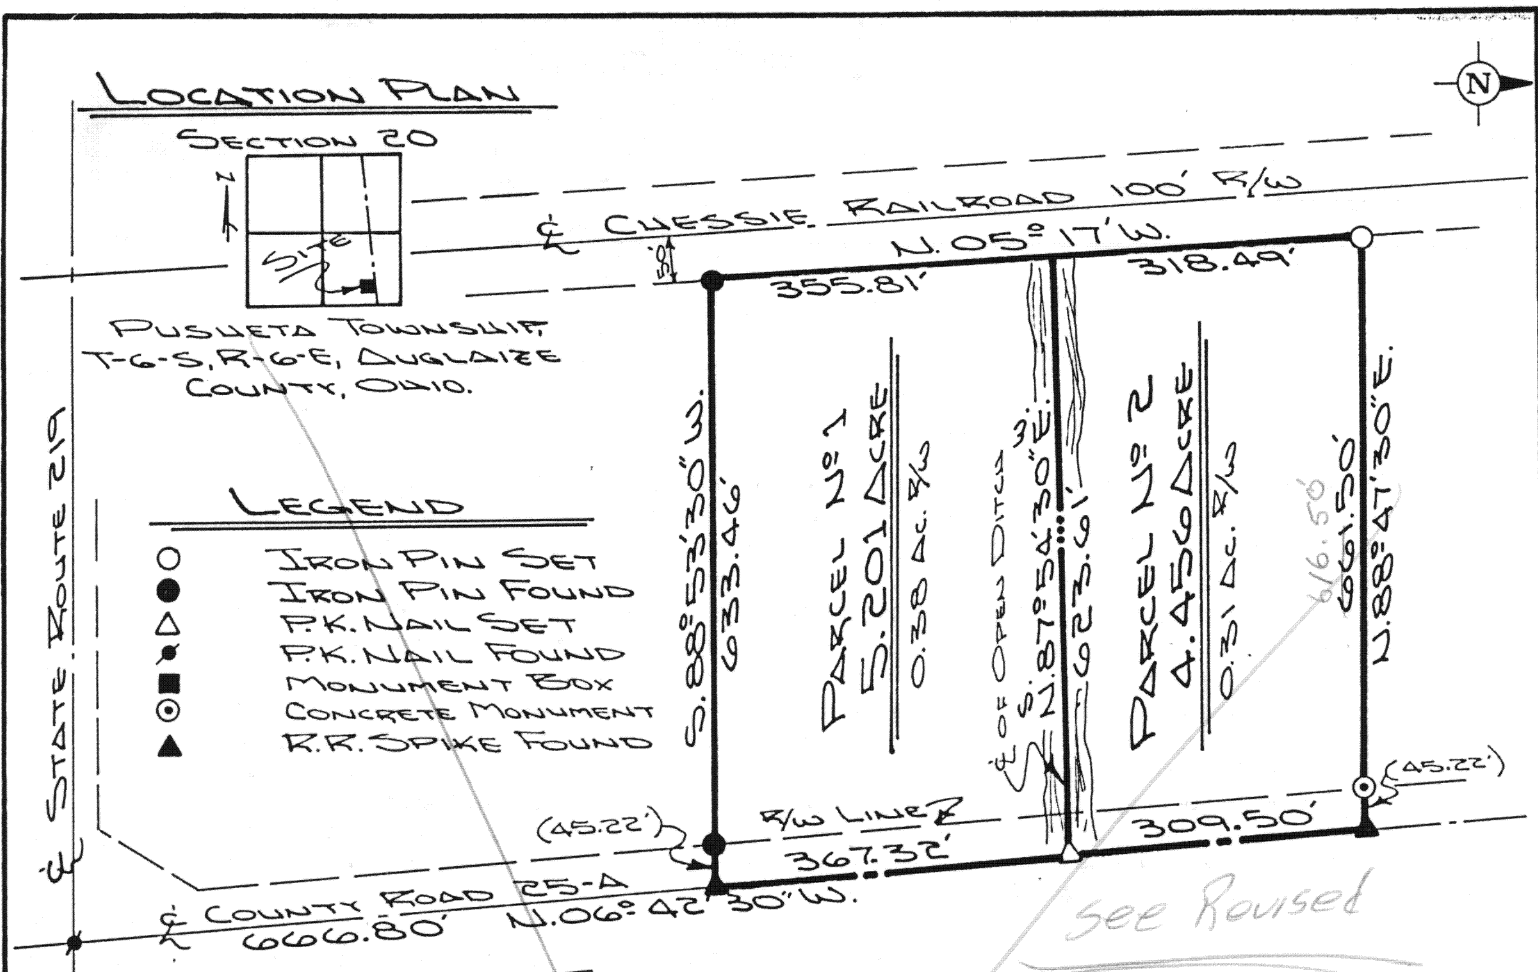 LOCATION PLAN
SECTION 20
N
SITE
PUSHETA TOWNSHIP,
T-6-S, R-6-E, AUGLAIZE
COUNTY, OHIO.
N
℄ CHESSIE RAILROAD 100' R/W
50'
N. 05° 17' W.
355.81'
318.49'
LEGEND
IRON PIN SET
IRON PIN FOUND
P.K. NAIL SET
P.K. NAIL FOUND
MONUMENT BOX
CONCRETE MONUMENT
R.R. SPIKE FOUND
℄ STATE ROUTE 219
S. 88° 53' 30" W.
633.46'
PARCEL Nº 1
5.201 ACRE
0.38 AC. R/W
℄ OF OPEN DITCH
S. W.
N. 87° 54' 30" E.
623.61'
PARCEL Nº 2
4.456 ACRE
0.31 AC. R/W
616.50'
661.50'
N. 88° 47' 30" E.
(45.22')
(45.22')
R/W LINE
367.32'
309.50'
℄ COUNTY ROAD 25-A
666.80'
N. 06° 42' 30" W.
See Revised